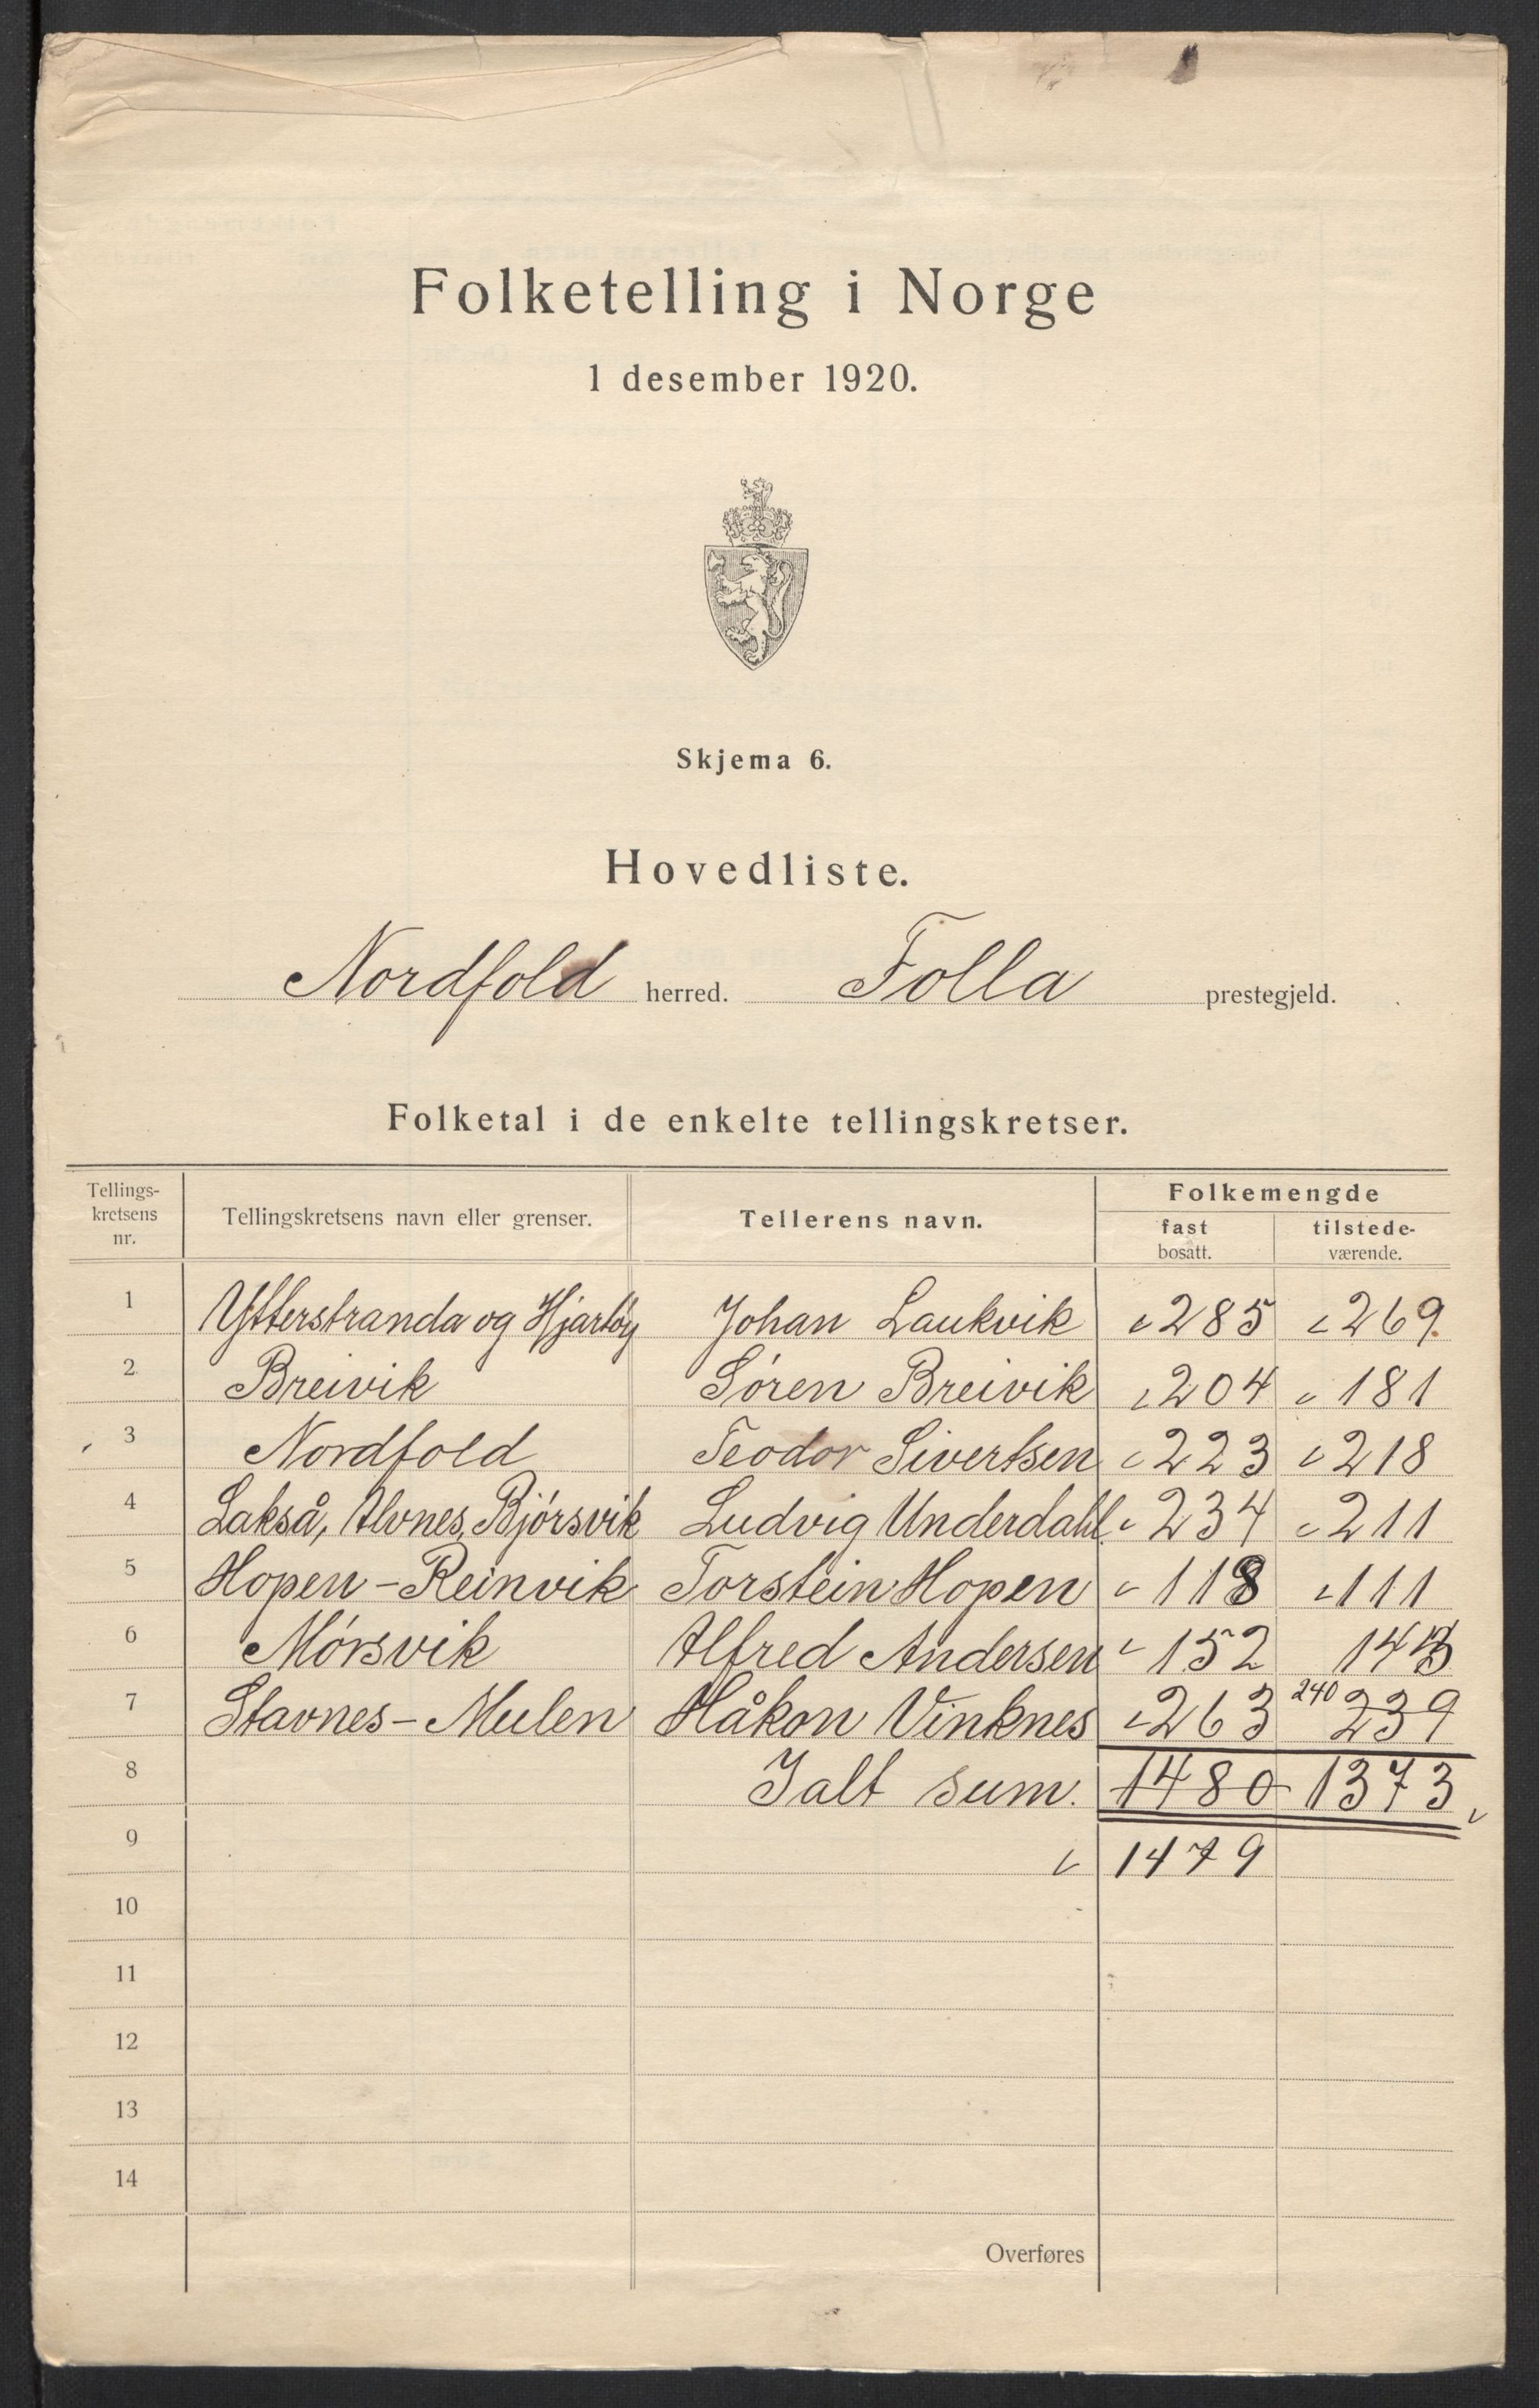 Folketelling i Norge
1 desember 1920.
Skjema 6.
Hovedliste.
Nordfold herred. Folla prestegjeld.
Folketal i de enkelte tellingskretser.
Tellings-kretsens nr. Tellingskretsens navn eller grenser. Tellerens navn. Folkemengde
fast bosatt. tilstede-værende.
1 Ytterstranda og Hjartöy Johan Laukvik 285 269.
2 Breivik Sören Breivik 204 181
3 Nordfold Teodor Sivertsen 223 218
4 Lakså, Alvnes, Bjørsvik Ludvig Underdahl. 234 211
5 Hopen - Reinvik Torstein Hopen 118 111
6 Mörsvik Alfred Andersen 152 143
7 Stavnes - Mulen Håkon Vinknes 263 240 239
8 Ialt sum. 1480 1373
9 1479
10
11
12
13
14
Overføres